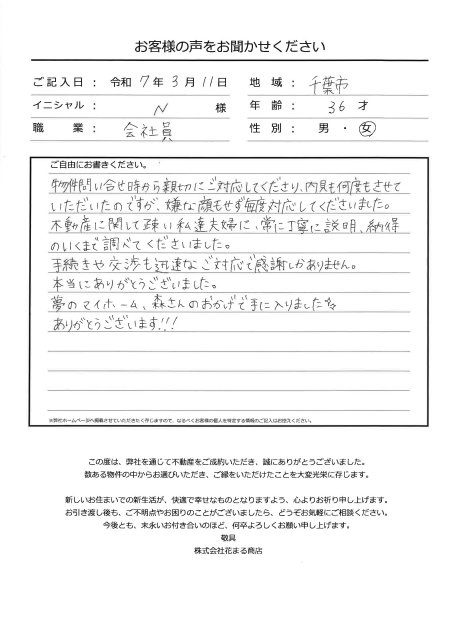 お客様の声をお聞かせください
ご記入日： 令和 7 年 3 月 11 日 地域： 千葉市
イニシャル： N 様 年齢： 36 才
職業： 会社員 性別： 男・女
ご自由にお書きください。
物件問い合せ時から親切にご対応してくださり、内見も何度もさせて
いただいたのですが、嫌な顔もせず毎度対応してくださいました。
不動産に関して疎い私達夫婦に、常に丁寧に説明、納得
のいくまで調べてくださいました。
手続きや交渉も迅速なご対応で感謝しかありません。
本当にありがとうございました。
夢のマイホーム、森さんのおかげで手に入りました☆
ありがとうございます!!!
※弊社ホームページへ掲載させていただきたく存じますので、なるべくお客様の個人を特定する情報のご記入はお控えください。
この度は、弊社を通じて不動産をご成約いただき、誠にありがとうございました。
数ある物件の中からお選びいただき、ご縁をいただけたことを大変光栄に存じます。
新しいお住まいでの新生活が、快適で幸せなものとなりますよう、心よりお祈り申し上げます。
お引き渡し後も、ご不明点やお困りのことがございましたら、どうぞお気軽にご相談ください。
今後とも、末永いお付き合いのほど、何卒よろしくお願い申し上げます。
敬具
株式会社花まる商店